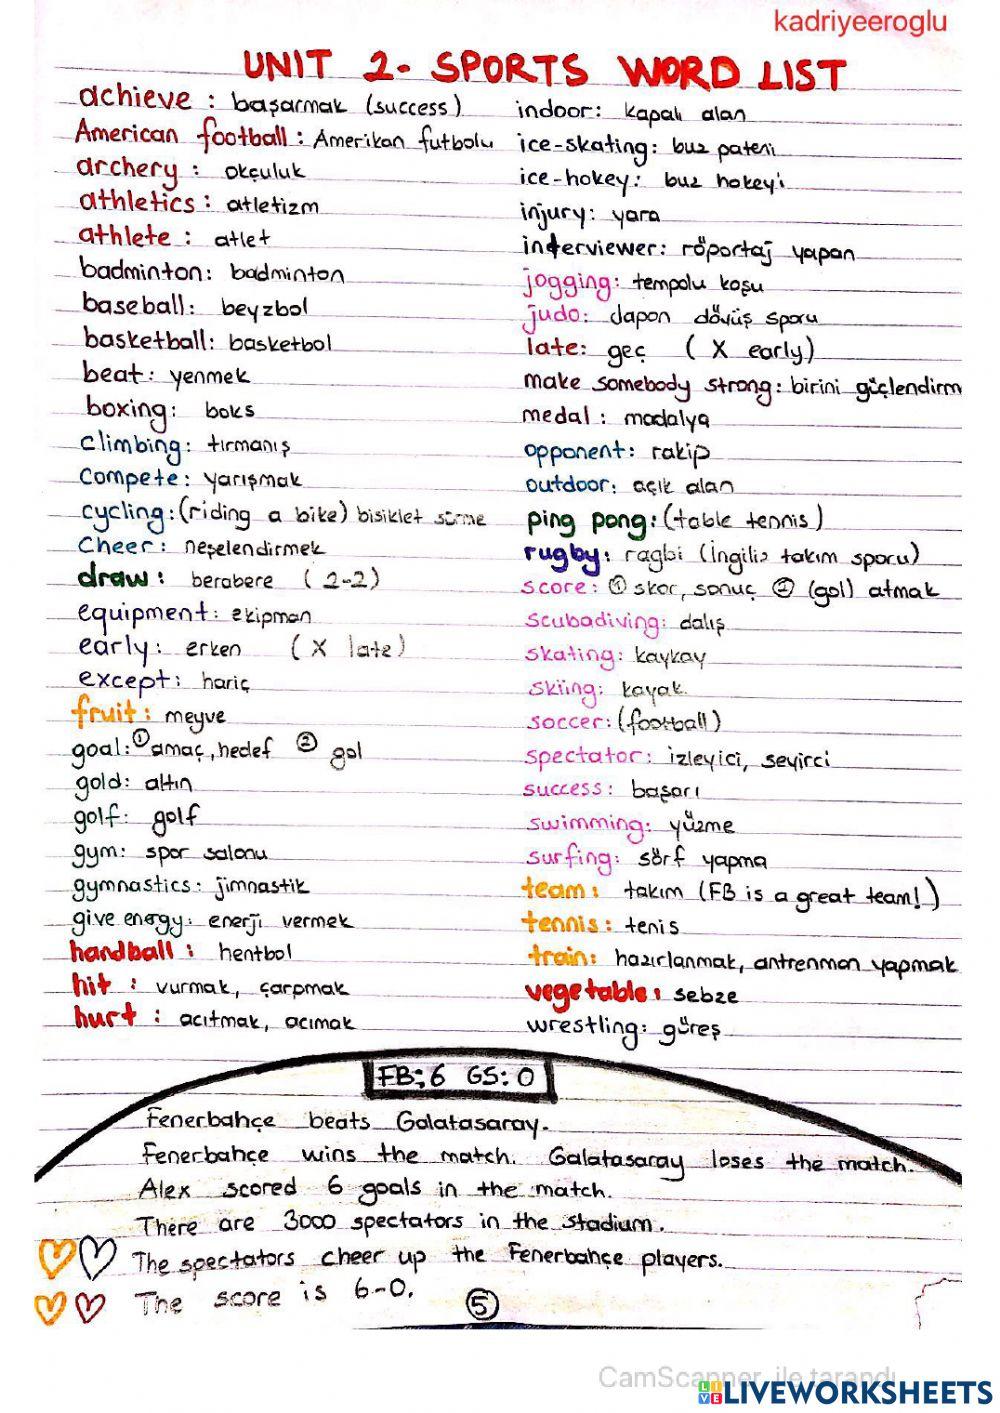 kadriyeeroglu
UNIT 2- SPORTS WORD LIST
achieve : başarmak (success)
American football : Amerikan futbolu
archery : okçuluk
athletics : atletizm
athlete : atlet
badminton: badminton
baseball: beyzbol
basketball: basketbol
beat: yenmek
boxing: boks
climbing: tırmanış
compete: yarışmak
cycling:(riding a bike) bisiklet sürme
Cheer: neşelendirmek
draw: berabere (2-2)
equipment: ekipman
early: erken (X late)
except: hariç
fruit: meyve
goal:① amaç, hedef ② gol
gold: altın
golf: golf
gym: spor salonu
gymnastics: jimnastik
give energy: enerji vermek
handball : hentbol
hit : vurmak, çarpmak
hurt : acıtmak, acımak
indoor: kapalı alan
ice-skating: buz pateni
ice-hokey: buz hokey'i
injury: yara
interviewer: röportaj yapan
jogging: tempolu koşu
judo: Japon dövüş sporu
late: geç (X early)
make somebody strong: birini güçlendirm
medal: madalya
opponent: rakip
outdoor: açık alan
ping pong: (table tennis)
rugby: ragbi (İngiliz takım sporu)
score: ① skor, sonuç ② (gol) atmak
scubadiving: dalış
skating: kaykay
skiing: kayak
soccer: (football)
spectator: izleyici, seyirci
success: başarı
swimming: yüzme
surfing: sörf yapma
team: takım (FB is a great team!)
tennis: tenis
train: hazırlanmak, antrenman yapmak
vegetable: sebze
wrestling: güreş
FB: 6 GS: 0
Fenerbahçe beats Galatasaray.
Fenerbahçe wins the match. Galatasaray loses the match.
Alex scored 6 goals in the match.
There are 3000 spectators in the stadium.
The spectators cheer up the Fenerbahçe players.
The score is 6-0.
⑤
CamScanner ile tarandı
LIVEWORKSHEETS